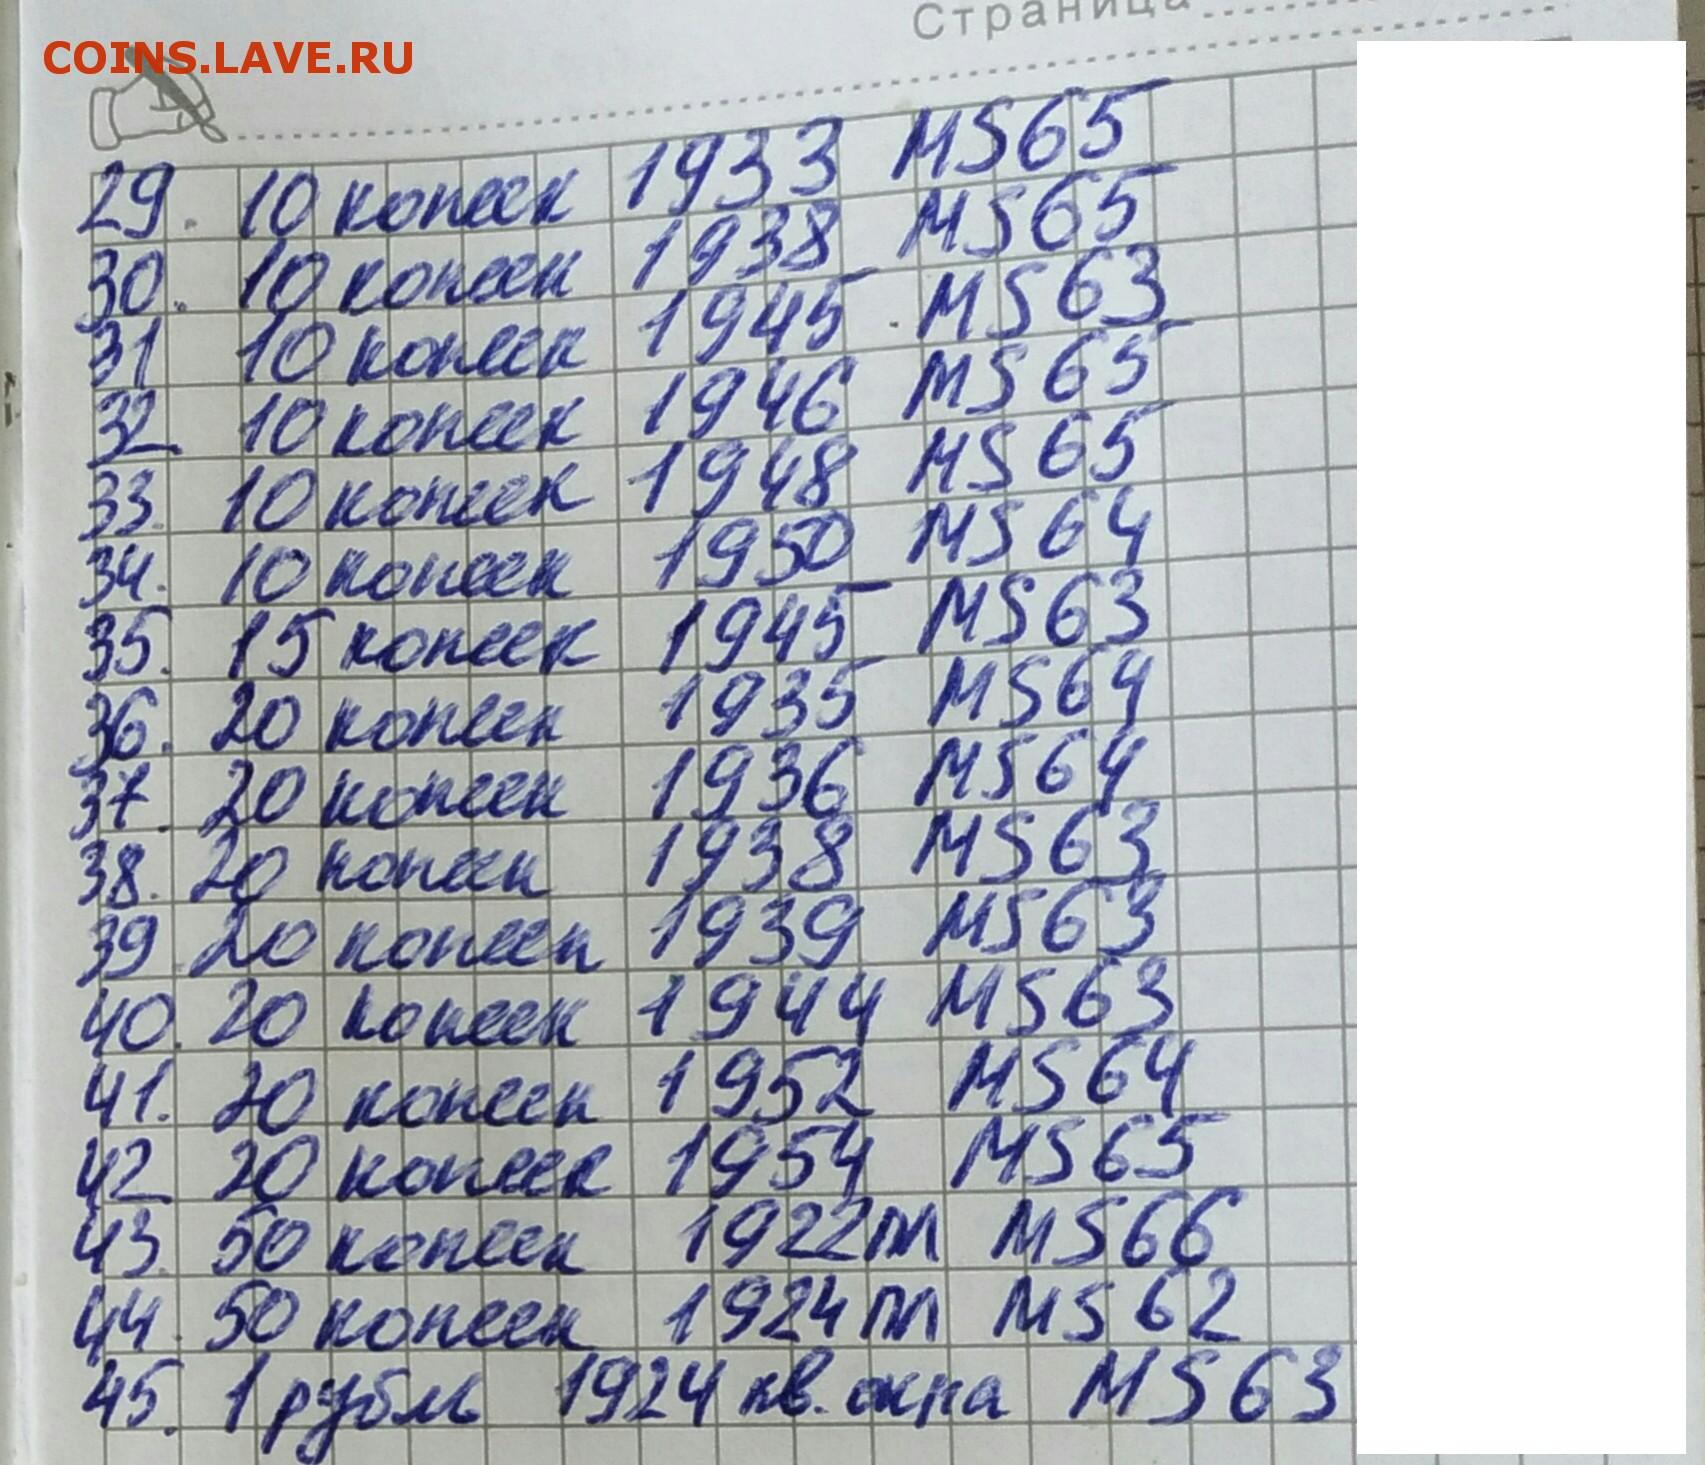 Страница
COINS.LAVE.RU
29. 10 копеек 1933 MS65
30. 10 копеек 1938 MS65
31 10 копеек 1945 MS63
32 10 копеек 1946 MS65
33. 10 копеек 1948 MS65
34. 10 копеек 1950 MS64
35. 15 копеек 1945 MS63
36. 20 копеек 1935 MS64
37. 20 копеек 1936 MS64
38. 20 копеек 1938 MS63
39 20 копеек 1939 MS63
40. 20 копеек 1944 MS63
41. 20 копеек 1952 MS64
42 20 копеек 1954 MS65
43. 50 копеек 1922ПЛ MS66
44. 50 копеек 1924ПЛ MS62
45. 1 рубль 1924 кв. окна MS63